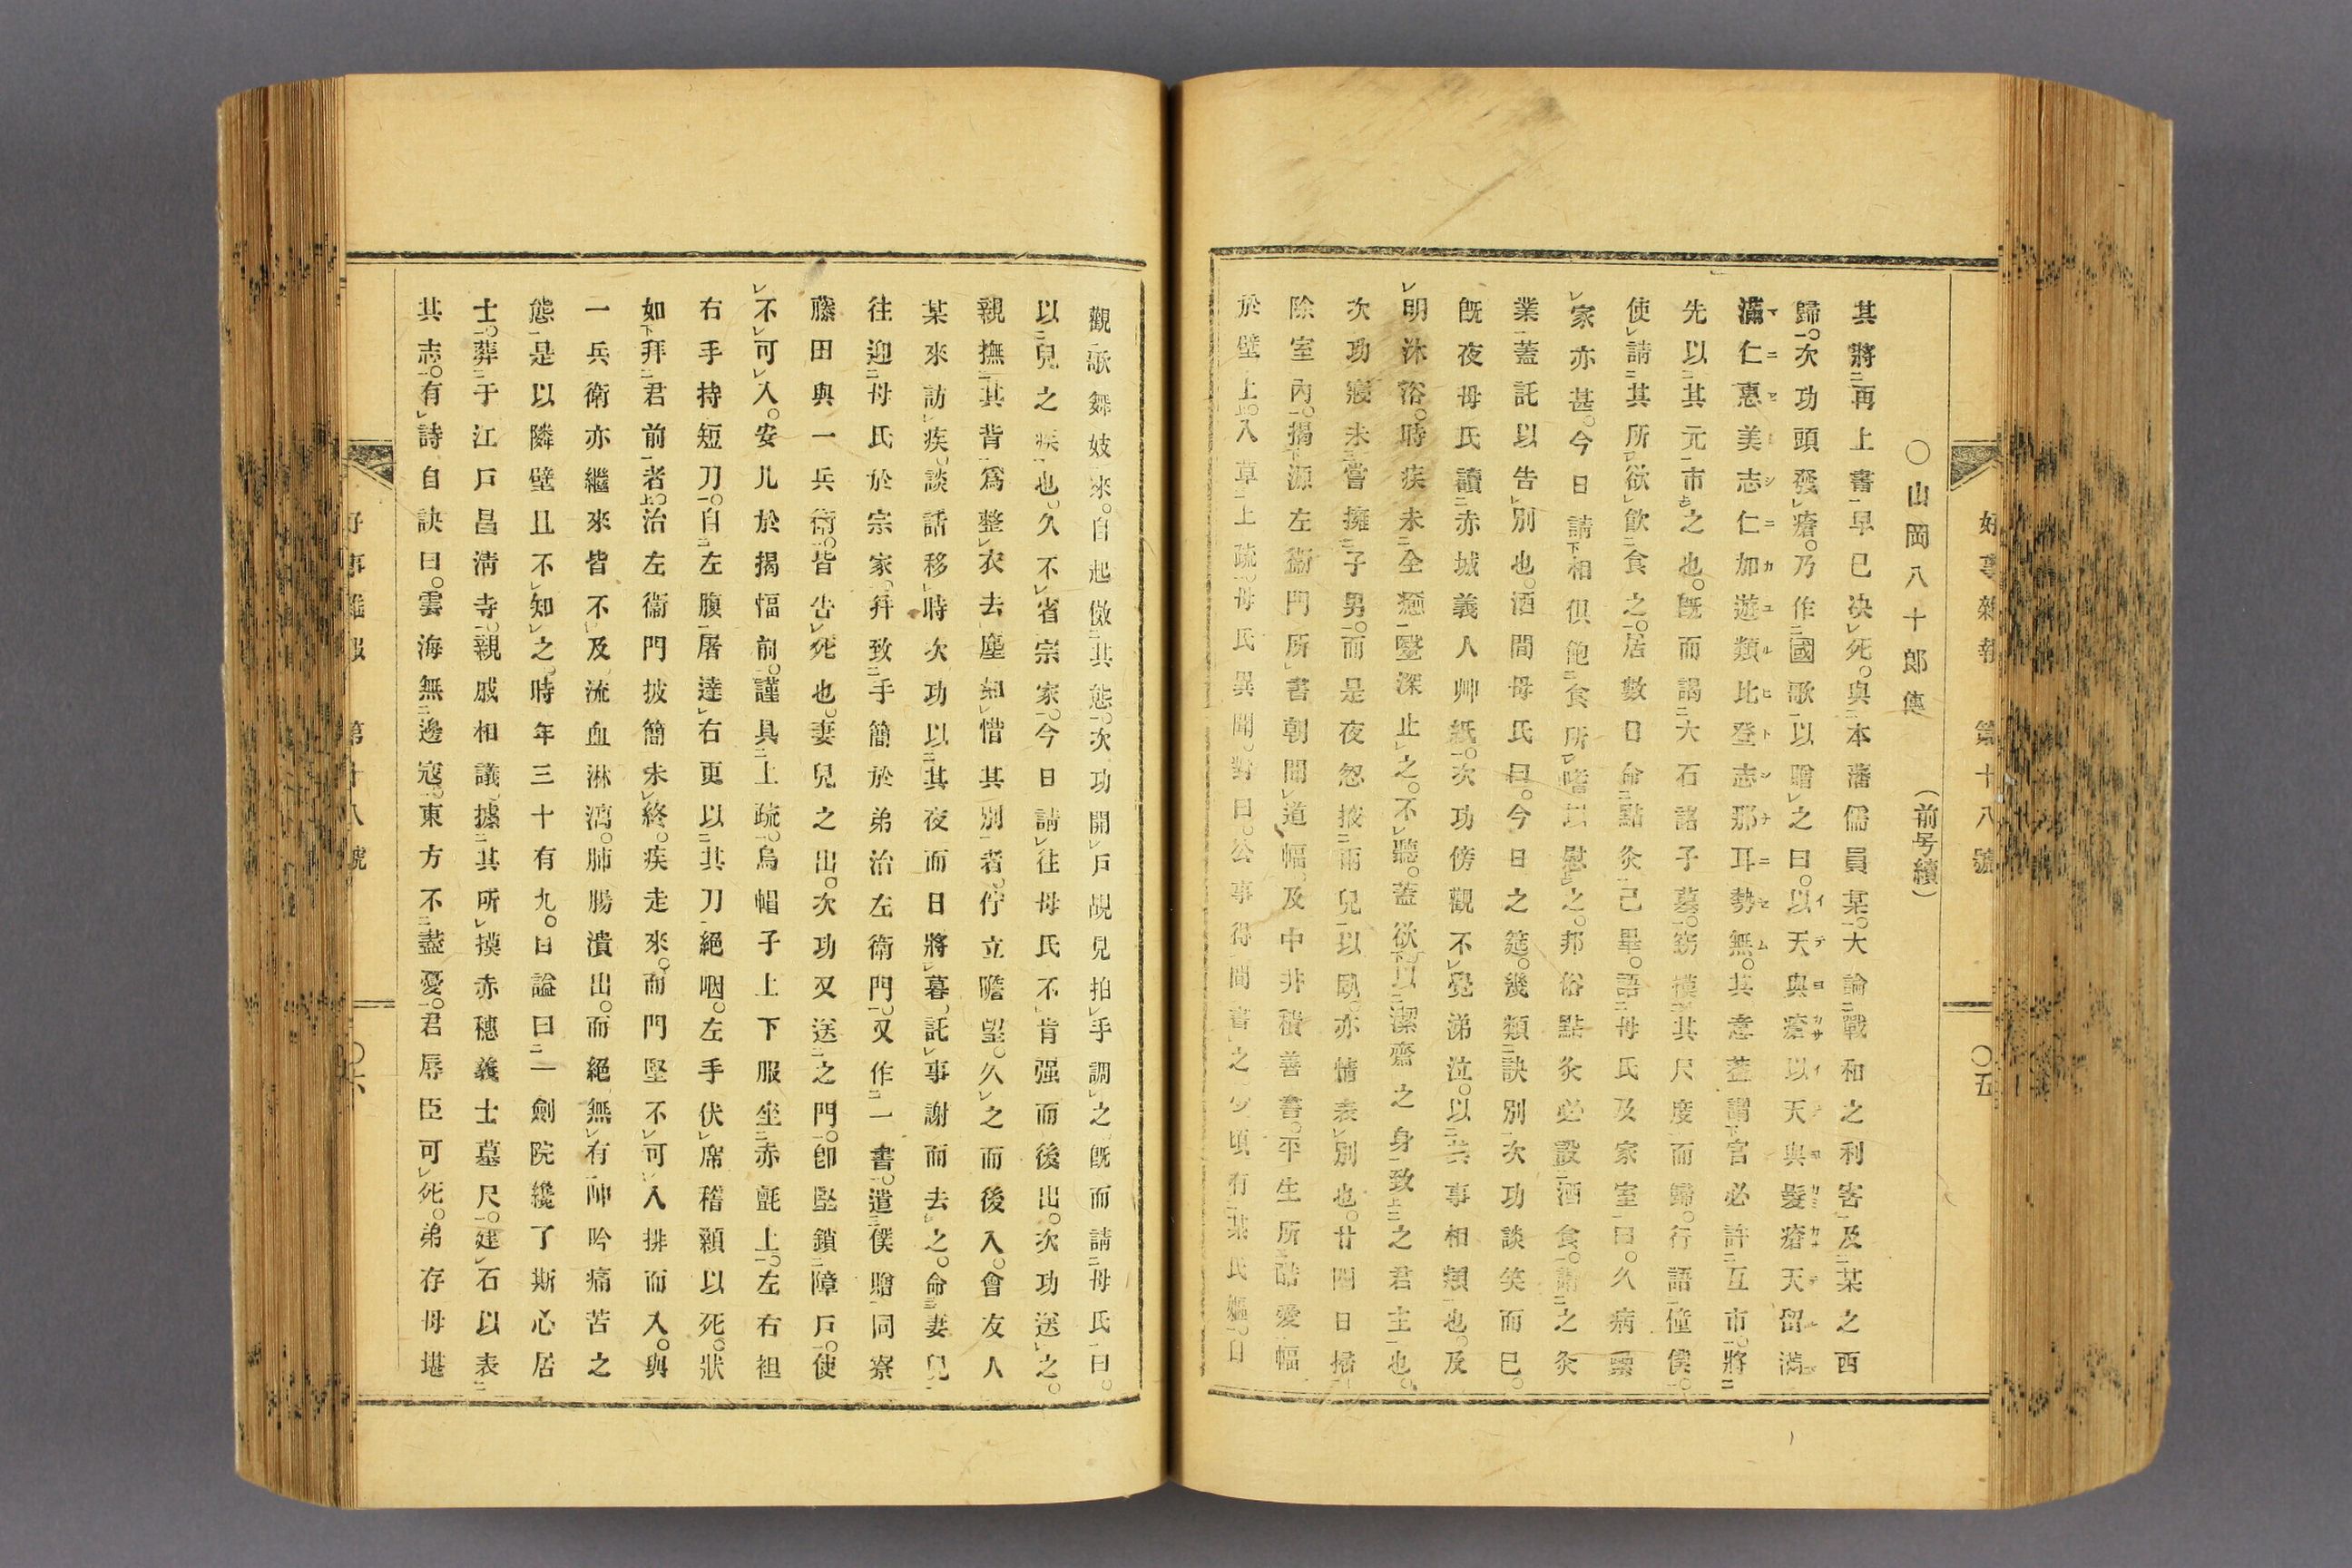 好事雜報 第十八號 〇五
〇山岡八十郎傳 (前号續)
其將再上書早已決死。與本藩儒員某。大論戰和之利害及某之西
歸。次功頭發瘡。乃作國歌以贈之曰。以天與瘡以天與髮瘡天留滿
滿仁惠美志仁加遊類比登志那耳勢無。其意蓋謂官必許互市。將
先以其元市之也。既而謁大石諸子墓。窈摸其尺度而歸。行語僮僕。
使請其所欲飲食之。居數日命點灸己畢。語母氏及家室曰。久病
家亦甚。今日請相俱飽食所嗜以慰之。邦俗點灸必設酒食。謂之灸
業蓋託以告別也。酒間母氏曰。今日之筵。幾類訣別次功談笑而已。
既夜母氏讀赤城義人艸紙。次功傍觀不覺涕泣。以其事相類也。及
明沐浴。時疾未全癒醫深止之。不聽。蓋欲以潔齋之身致之君主也。
次功寢未嘗擁子男。而是夜忽掖兩兒以臥亦情表別也。廿四日掃
除室內。揭源左衞門所書朝聞道幅及中井積善書。平生所酷愛幅
於壁上。入草上疏。母氏異聞。對曰。公事得間書之。少頃有某氏嫗。曰
觀歌舞妓來。自起倣其態。次功開戶覘兒拍手調之既而請母氏曰。
以兒之疾也。久不省宗家。今日請往母氏不肯强而後出。次功送之。
親撫其背爲整衣去塵如惜其別者。佇立瞻望。久之而後入。會友人
某來訪疾。談話移時次功以其夜而日將暮託事謝而去之。命妻兒
往迎母氏於宗家。幷致手簡於弟治左衛門。又作一書遣僕贈同寮
藤田與一兵衞。皆告死也。妻兒之出。次功又送之門。卽堅鎖障戶。使
不可入。安儿於揭幅前。謹具上疏。烏帽子上下服坐赤氈上。左右袒
右手持短刀。自左腹屠達右更以其刀絕咽。左手伏席稽顙以死。狀
如拜君前者。治左衞門披簡未終。疾走來。而門堅不可入排而入。與
一兵衛亦繼來皆不及流血淋漓。肺膓潰出。而絕無有呻吟痛苦之
態是以隣壁且不知之。時年三十有九。曰謚曰一劍院纔了斯心居
士。葬于江戶昌淸寺。親戚相議。據其所摸赤穗義士墓尺。建石以表
其志。有詩自訣曰。雲海無邊寇。東方不盡憂。君辱臣可死。弟存母堪
好事雜報 第十八號 〇六